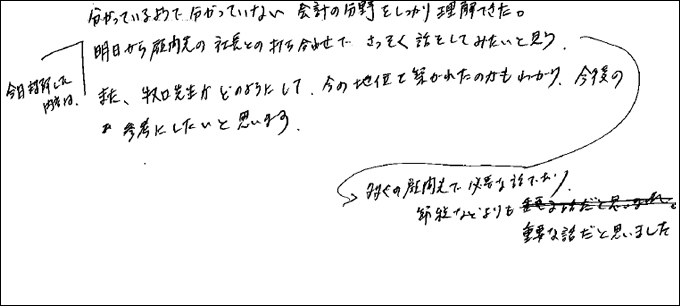 分かっているようで分かっていない 会計の分野をしっかり理解できた。
明日から顧問先の社長との打ち合わせで さっそく話をしてみたいと思う
今日お話しした
内容は、
また、牧口先生がどのようにして、今の地位を築かれたのかもわかり、今後の
参考にしたいと思います。
多くの顧問先で必要な話であり、
節税などよりも
重要な話だと思いました